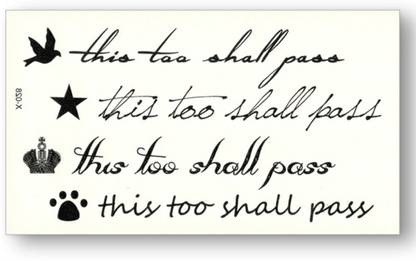 this too shall pass
this too shall pass
this too shall pass
this too shall pass
X-028